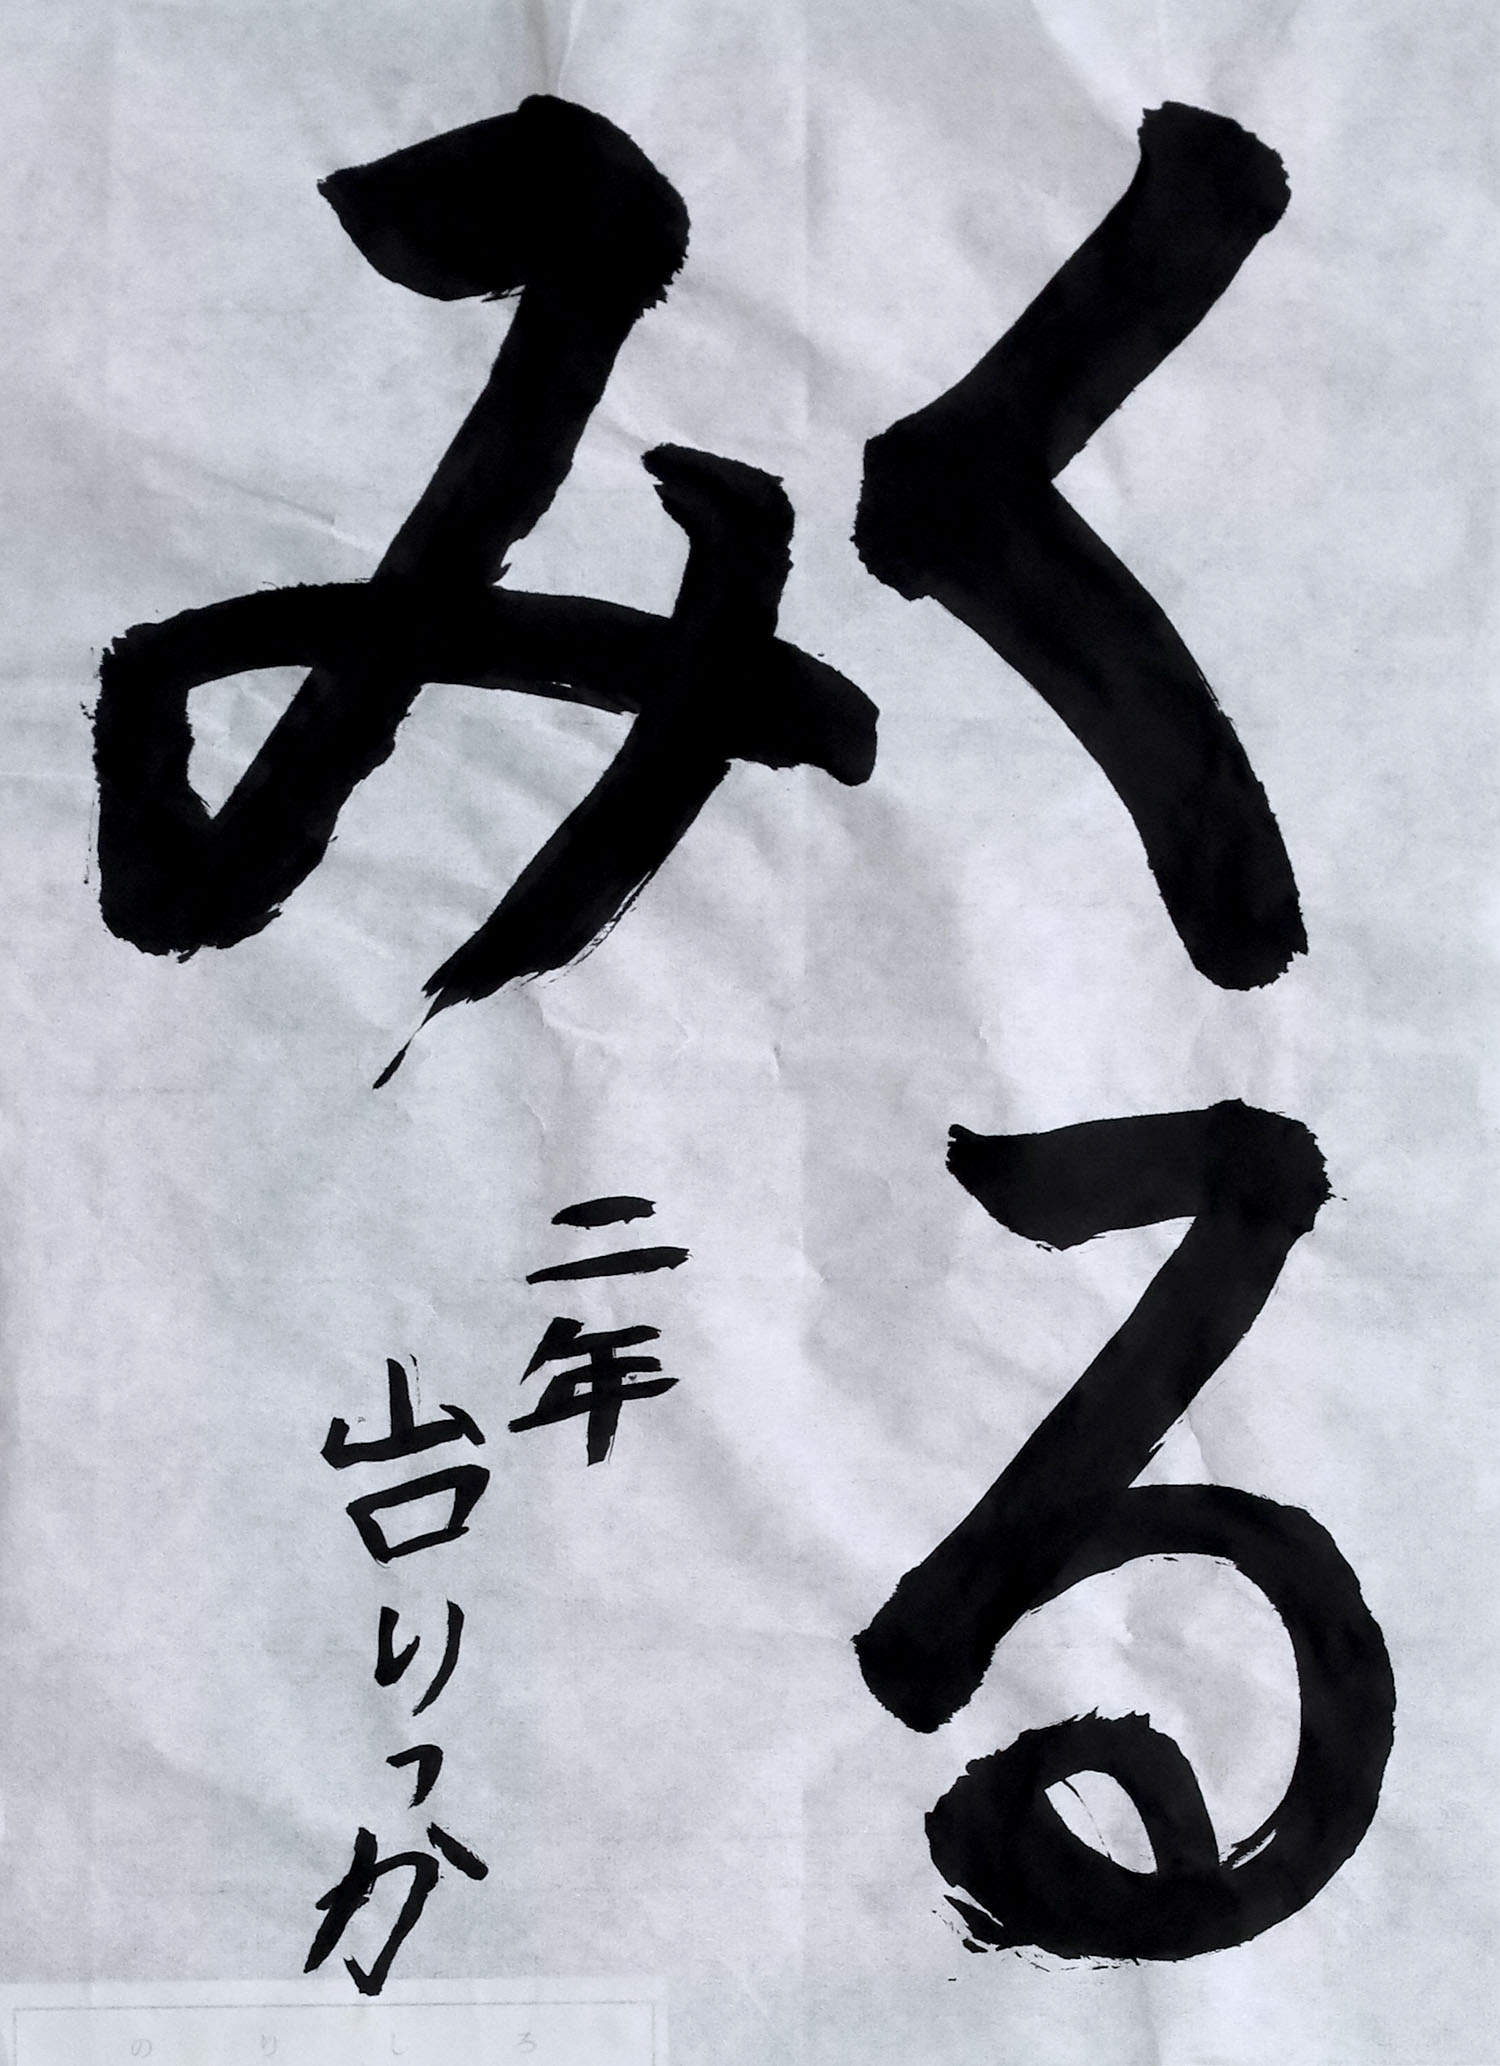 くる
み
二年
山口りっか
のりしろ